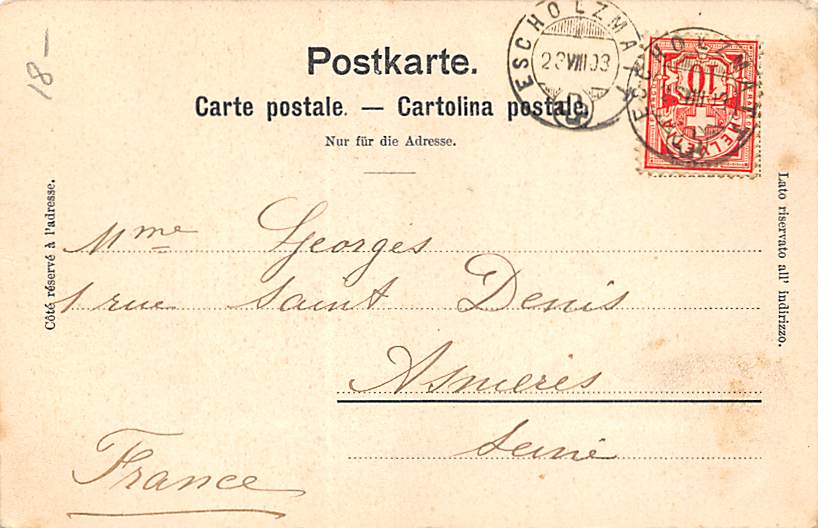 18-
Postkarte.
Carte postale. — Cartolina postale.
Nur für die Adresse.
ESCHOLZMATT
23 VIII 03
ESCHOLZMATT
10
HELVETIA
Côté réservé à l'adresse.
Lato riservato all' indirizzo.
Mme Georges
1 rue Saint Denis
Asnieres
Seine
France